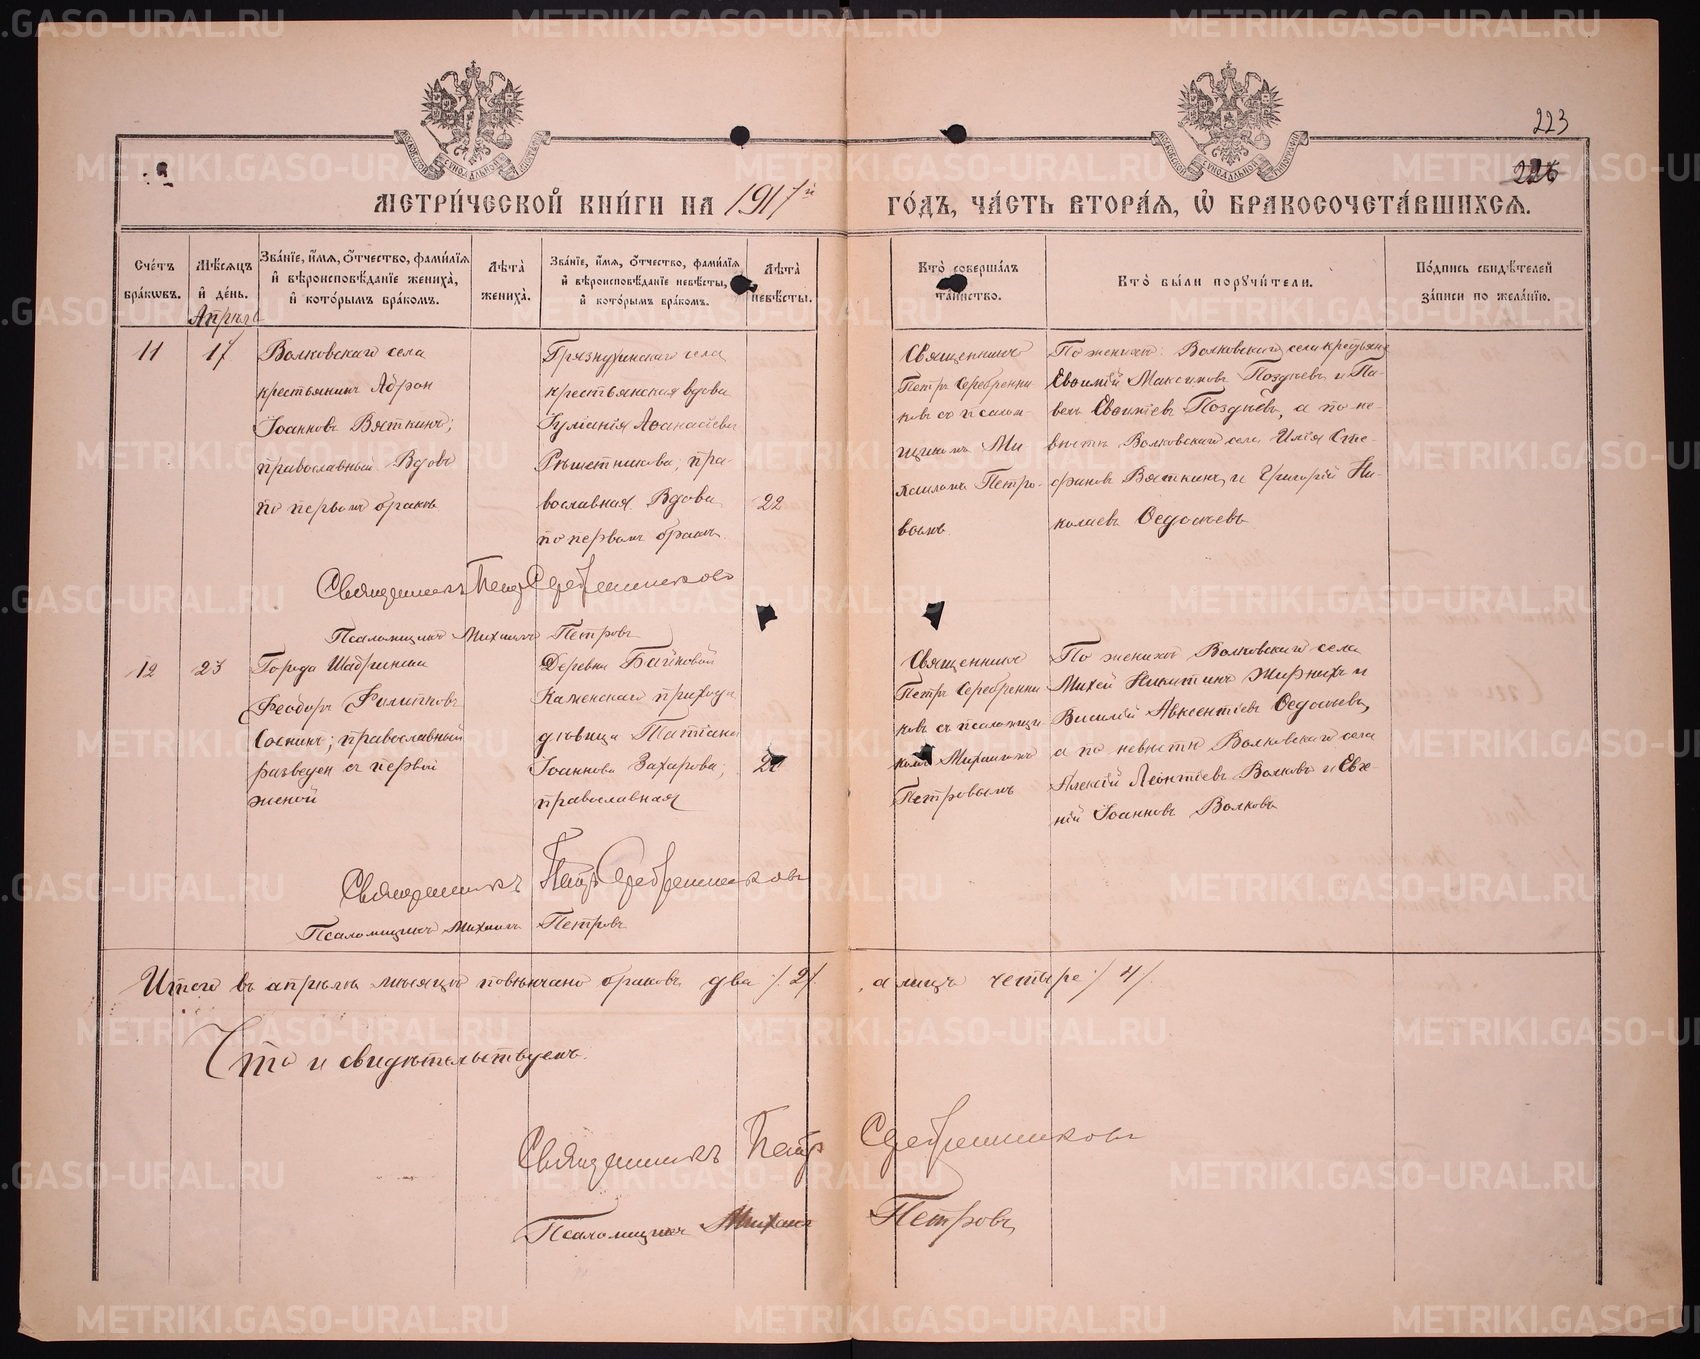 223
226
МЕТРИ́ЧЕСКОЙ КНИ́ГИ НА 1917й ГО́ДЪ, ЧА́СТЬ ВТОРА́Я, Ѡ БРАКОСОЧЕТА́ВШИХСЯ.
Сче́тъ бра́кѡвъ.
Мѣ́сяцъ и де́нь.
Зва́нїе, и́мя, ѻ́тчество, фами́лїя и вѣроисповѣ́данїе жениха̀, и кото́рымъ бра́комъ.
Лѣ́та жениха̀.
Зва́нїе, и́мя, ѻ́тчество, фами́лїя и вѣроисповѣ́данїе невѣ́сты, и кото́рымъ бра́комъ.
Лѣ́та невѣ́сты.
Кто̀ соверша́лъ та́инство.
Кто̀ бы́ли порꙋчи́тели.
По́дпись свидѣ́телей за́писи по жела́нїю.
Апрѣль
11
17
Волковскаго села
крестьянинъ Адрон
Іоанновъ Вяткинъ;
православный. Вдовъ
по первомъ бракѣ
Грязнухинскаго села
крестьянская вдова
Іуліанія Аѳанасіева
Рѣшетникова, пра-
вославная. Вдова
по первомъ бракѣ.
22
Священникъ
Петръ Серебренни
ковъ съ псалом-
щикомъ Ми
хаиломъ Петро-
вымъ
По женихѣ: Волковскаго села крестьяне
Евѳимій Максимовъ Поздѣевъ и Па-
велъ Евѳиміевъ Поздѣевъ, а по не-
вѣстѣ Волковскаго села Илія Сте-
фановъ Вяткинъ, и Григорій Ни-
колаевъ Ѳедосѣевъ
Священникъ Петръ Серебренниковъ
Псаломщикъ Михаилъ Петровъ
12
23
Города Шадринска
Ѳеодоръ Филипповъ
Соснинъ; православный
разведен съ первой
женой
Деревни Байновой
Каменскаго прихода
дѣвица Татіана
Іоаннова Захарова;
православная
Священникъ
Петръ Серебренни
ковъ съ псаломщи
комъ Михаиломъ
Петровымъ
По женихѣ Волковскаго села
Михей Никитинъ Жирнихъ и
Василій Авксентіевъ Ѳедосѣевъ,
а по невѣстѣ Волковскаго села
Алексій Леонтіевъ Волковъ и Евге-
ній Іоанновъ Волковъ
Священникъ Петръ Серебренниковъ
Псаломщикъ Михаилъ Петровъ
Итого въ апрѣлѣ мѣсяцѣ повѣнчано браковъ два /2/, а лицъ четыре /4/.
Что и свидѣтельствуемъ.
Священникъ Петръ Серебренниковъ
Псаломщикъ Михаилъ Петровъ
METRIKI.GASO-URAL.RU